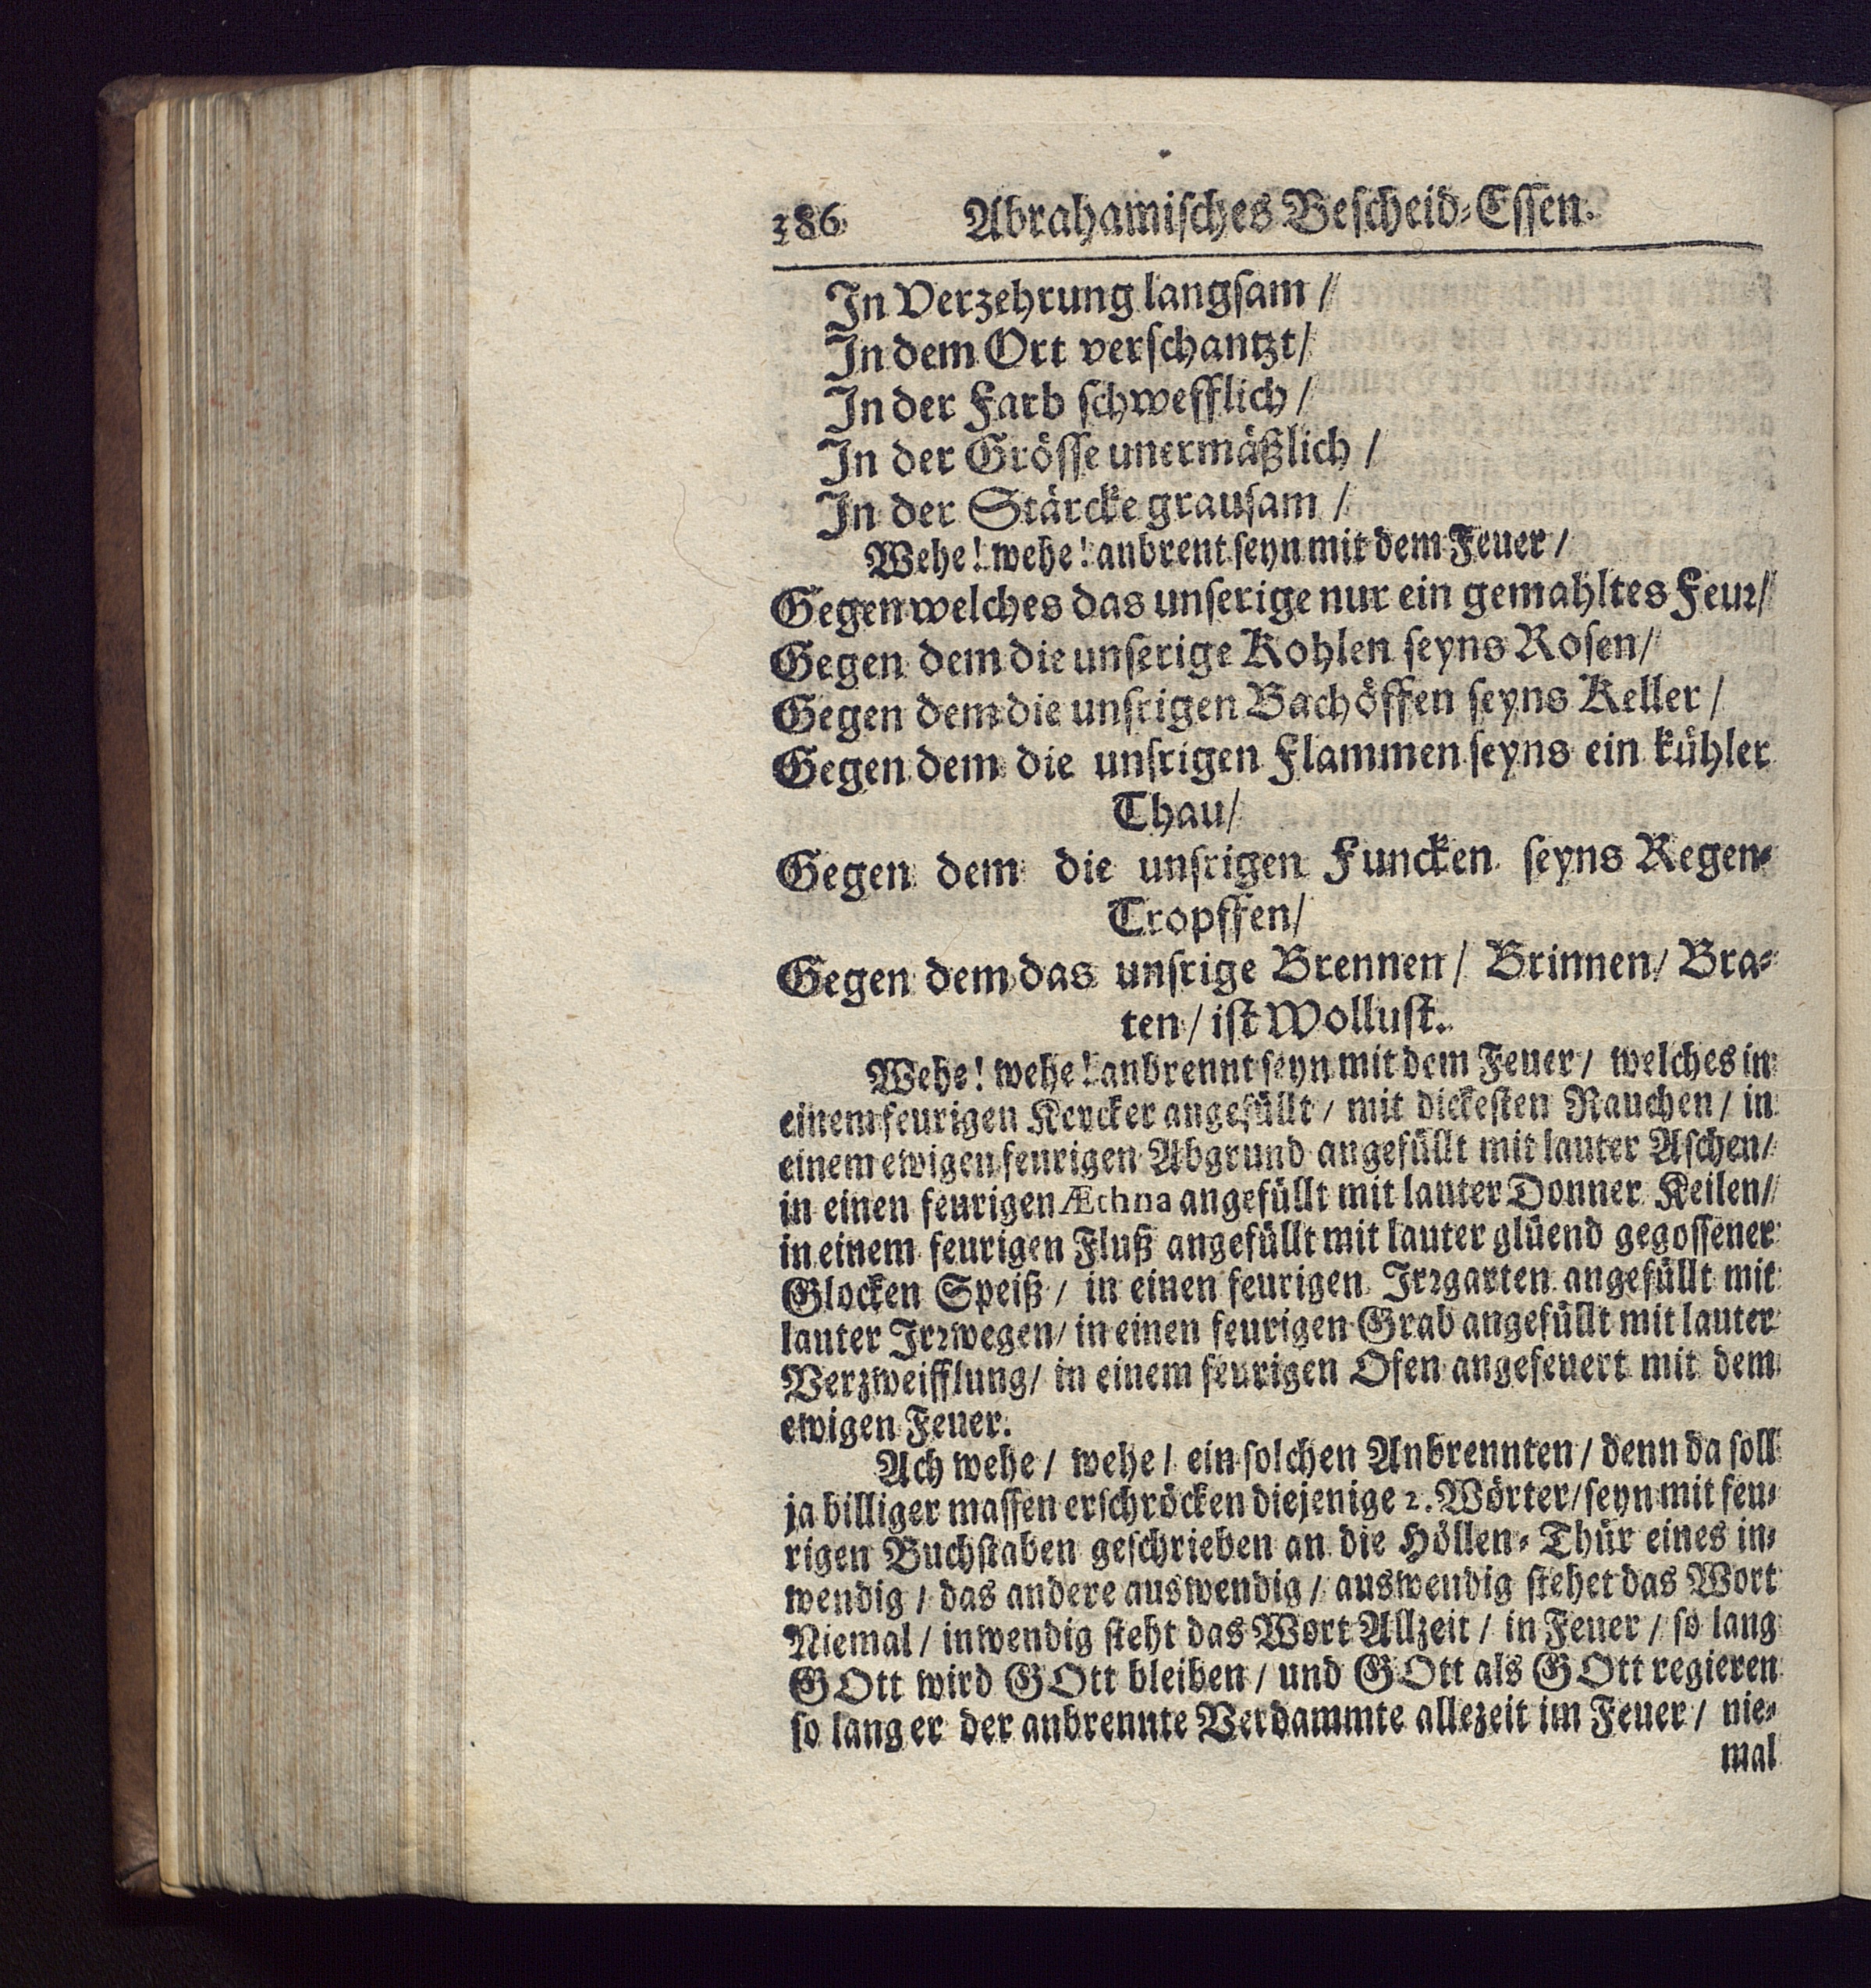 386 Abrahamiſches Beſcheid-Eſſen.
In Verzehrung langſam /
In dem Ort verſchantzt/
In der Farb ſchwefflich /
In der Gröſſe unermäßlich /
In der Stärcke grauſam /
Wehe! wehe! anbrent ſeyn mit dem Feuer /
Gegen welches das unſerige nur ein gemahltes Feuꝛ/
Gegen dem die unſerige Kohlen ſeyns Roſen/
Gegen dem die unſrigen Bachöffen ſeyns Keller /
Gegen dem die unſrigen Flammen ſeyns ein kühler
Thau/
Gegen dem die unſrigen Funcken ſeyns Regen-
Tropffen/
Gegen dem das unſrige Brennen/ Brinnen/ Bra-
ten/ iſt Wolluſt.
Wehe! wehe! anbrennt ſeyn mit dem Feuer/ welches in
einem feurigen Kercker angefüllt / mit dickeſten Rauchen / in
einem ewigen feurigen Abgrund angefüllt mit lauter Aſchen/
in einen feurigen Æthna angefüllt mit lauter Donner Keilen/
in einem feurigen Fluß angefüllt mit lauter glüend gegoſſener
Glocken Speiß / in einen feurigen Irꝛgarten angefüllt mit
lauter Irꝛwegen/ in einen feurigen Grab angefüllt mit lauter
Verzweifflung/ in einem feurigen Ofen angefeuert mit dem
ewigen Feuer.
Ach wehe / wehe / ein ſolchen Anbrennten / denn da ſoll
ja billiger maſſen erſchröcken diejenige 2. Wörter/ſeyn mit feu-
rigen Buchſtaben geſchrieben an die Höllen-Thür eines in-
wendig / das andere auswendig / auswendig ſtehet das Wort
Niemal / inwendig ſteht das Wort Allzeit / in Feuer / ſo lang
GOtt wird GOtt bleiben / und GOtt als GOtt regieren
ſo lang er der anbrennte Verdammte allezeit im Feuer / nie-
mal